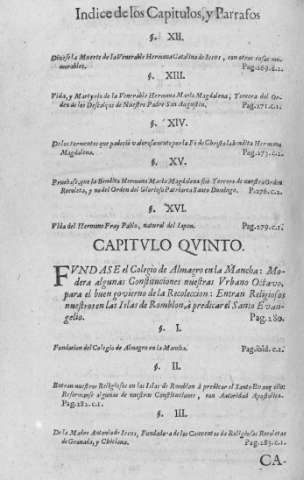 Indice de los Capitulos, y Parrafos
§. XII.
Dizese la Muerte de la Venerable Hermana Catalina de Iesus, con otras cosas me-
morables. Pag.169.c.2.
§. XIII.
Vida, y Martyrio de la Venerable Hermana Maria Magdalena, Tercera del Or-
den de los Descalços de Nuestro Padre San Augustin. Pag.171.c.1.
§. XIV.
De los tormentos que padeciò valerosamente por la Fè de Christo la bendita Hermana
Magdalena. Pag.173.c.1.
§. XV.
Pruebase, que la bendita Hermana Maria Magdalena fuè Tercera de nuestra Orden
Recoleta, y no del Orden del Glorioso Patriarca Santo Domingo. P.176.c.2.
§. XVI.
Vida del Hermano Fray Pablo, natural del Iapon. Pag.179.c.1.
CAPITVLO QVINTO.
FVNDASE el Colegio de Almagro en la Mancha: Mo-
dera algunas Constituciones nuestras Vrbano Octavo,
para el buen govierno de la Recoleccion: Entran Religiosos
nuestros en las Islas de Romblon, à predicar el Santo Evan-
gelio. Pag.180.
§. I.
Fundacion del Colegio de Almagro en la Mancha. Pag.ibid.c.2.
§. II.
Entran nuestros Religiosos en las Islas de Romblon à predicar el Santo Evangelio:
Reformanse algunas de nuestras Constituciones, con Autoridad Apostolica.
Pag.182.c.1.
§. III.
De la Madre Antonia de Iesus, Fundadora de los Conventos de Religiosas Recoletas
de Granada, y Chiclana. Pag.185.c.1.
CA-